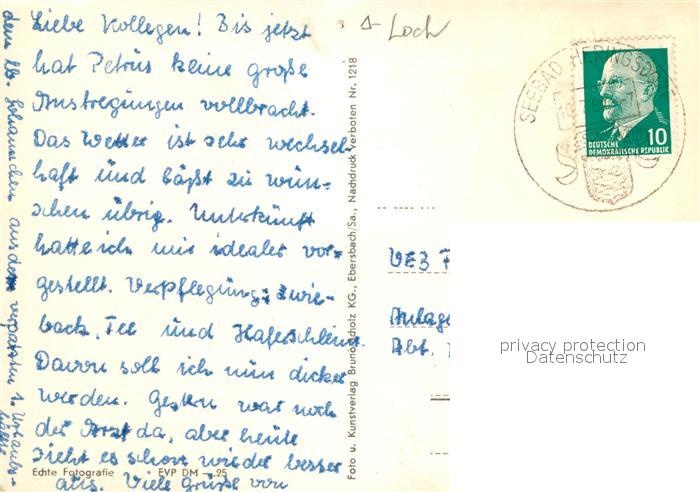 Liebe Kollegen! Bis jetzt
hat Petrus keine große
Anstregungen vollbracht.
Das Wetter ist sehr wechsel-
haft und läßt zu wün-
schen übrig. Unterkunft
hatte ich mir idealer vor-
gestellt. Verpflegung: Zwie-
back, Tee und Haferschleim.
Davon soll ich nun dicker
werden. Gestern war noch
der Arzt da, aber heute
sieht es schon wieder besser
aus. Viele Grüße von
dem lb. aus dem verpatzten 1. Urlaubs-
hälfte
Echte Fotografie EVP DM -.25
Foto u. Kunstverlag Bruno Scholz KG., Ebersbach/Sa., Nachdruck Verboten Nr. 1218
Loch
SEEBAD HERINGSDORF
10
DEUTSCHE
DEMOKRATISCHE REPUBLIK
VEB
Anlage
Abt.
privacy protection
Datenschutz